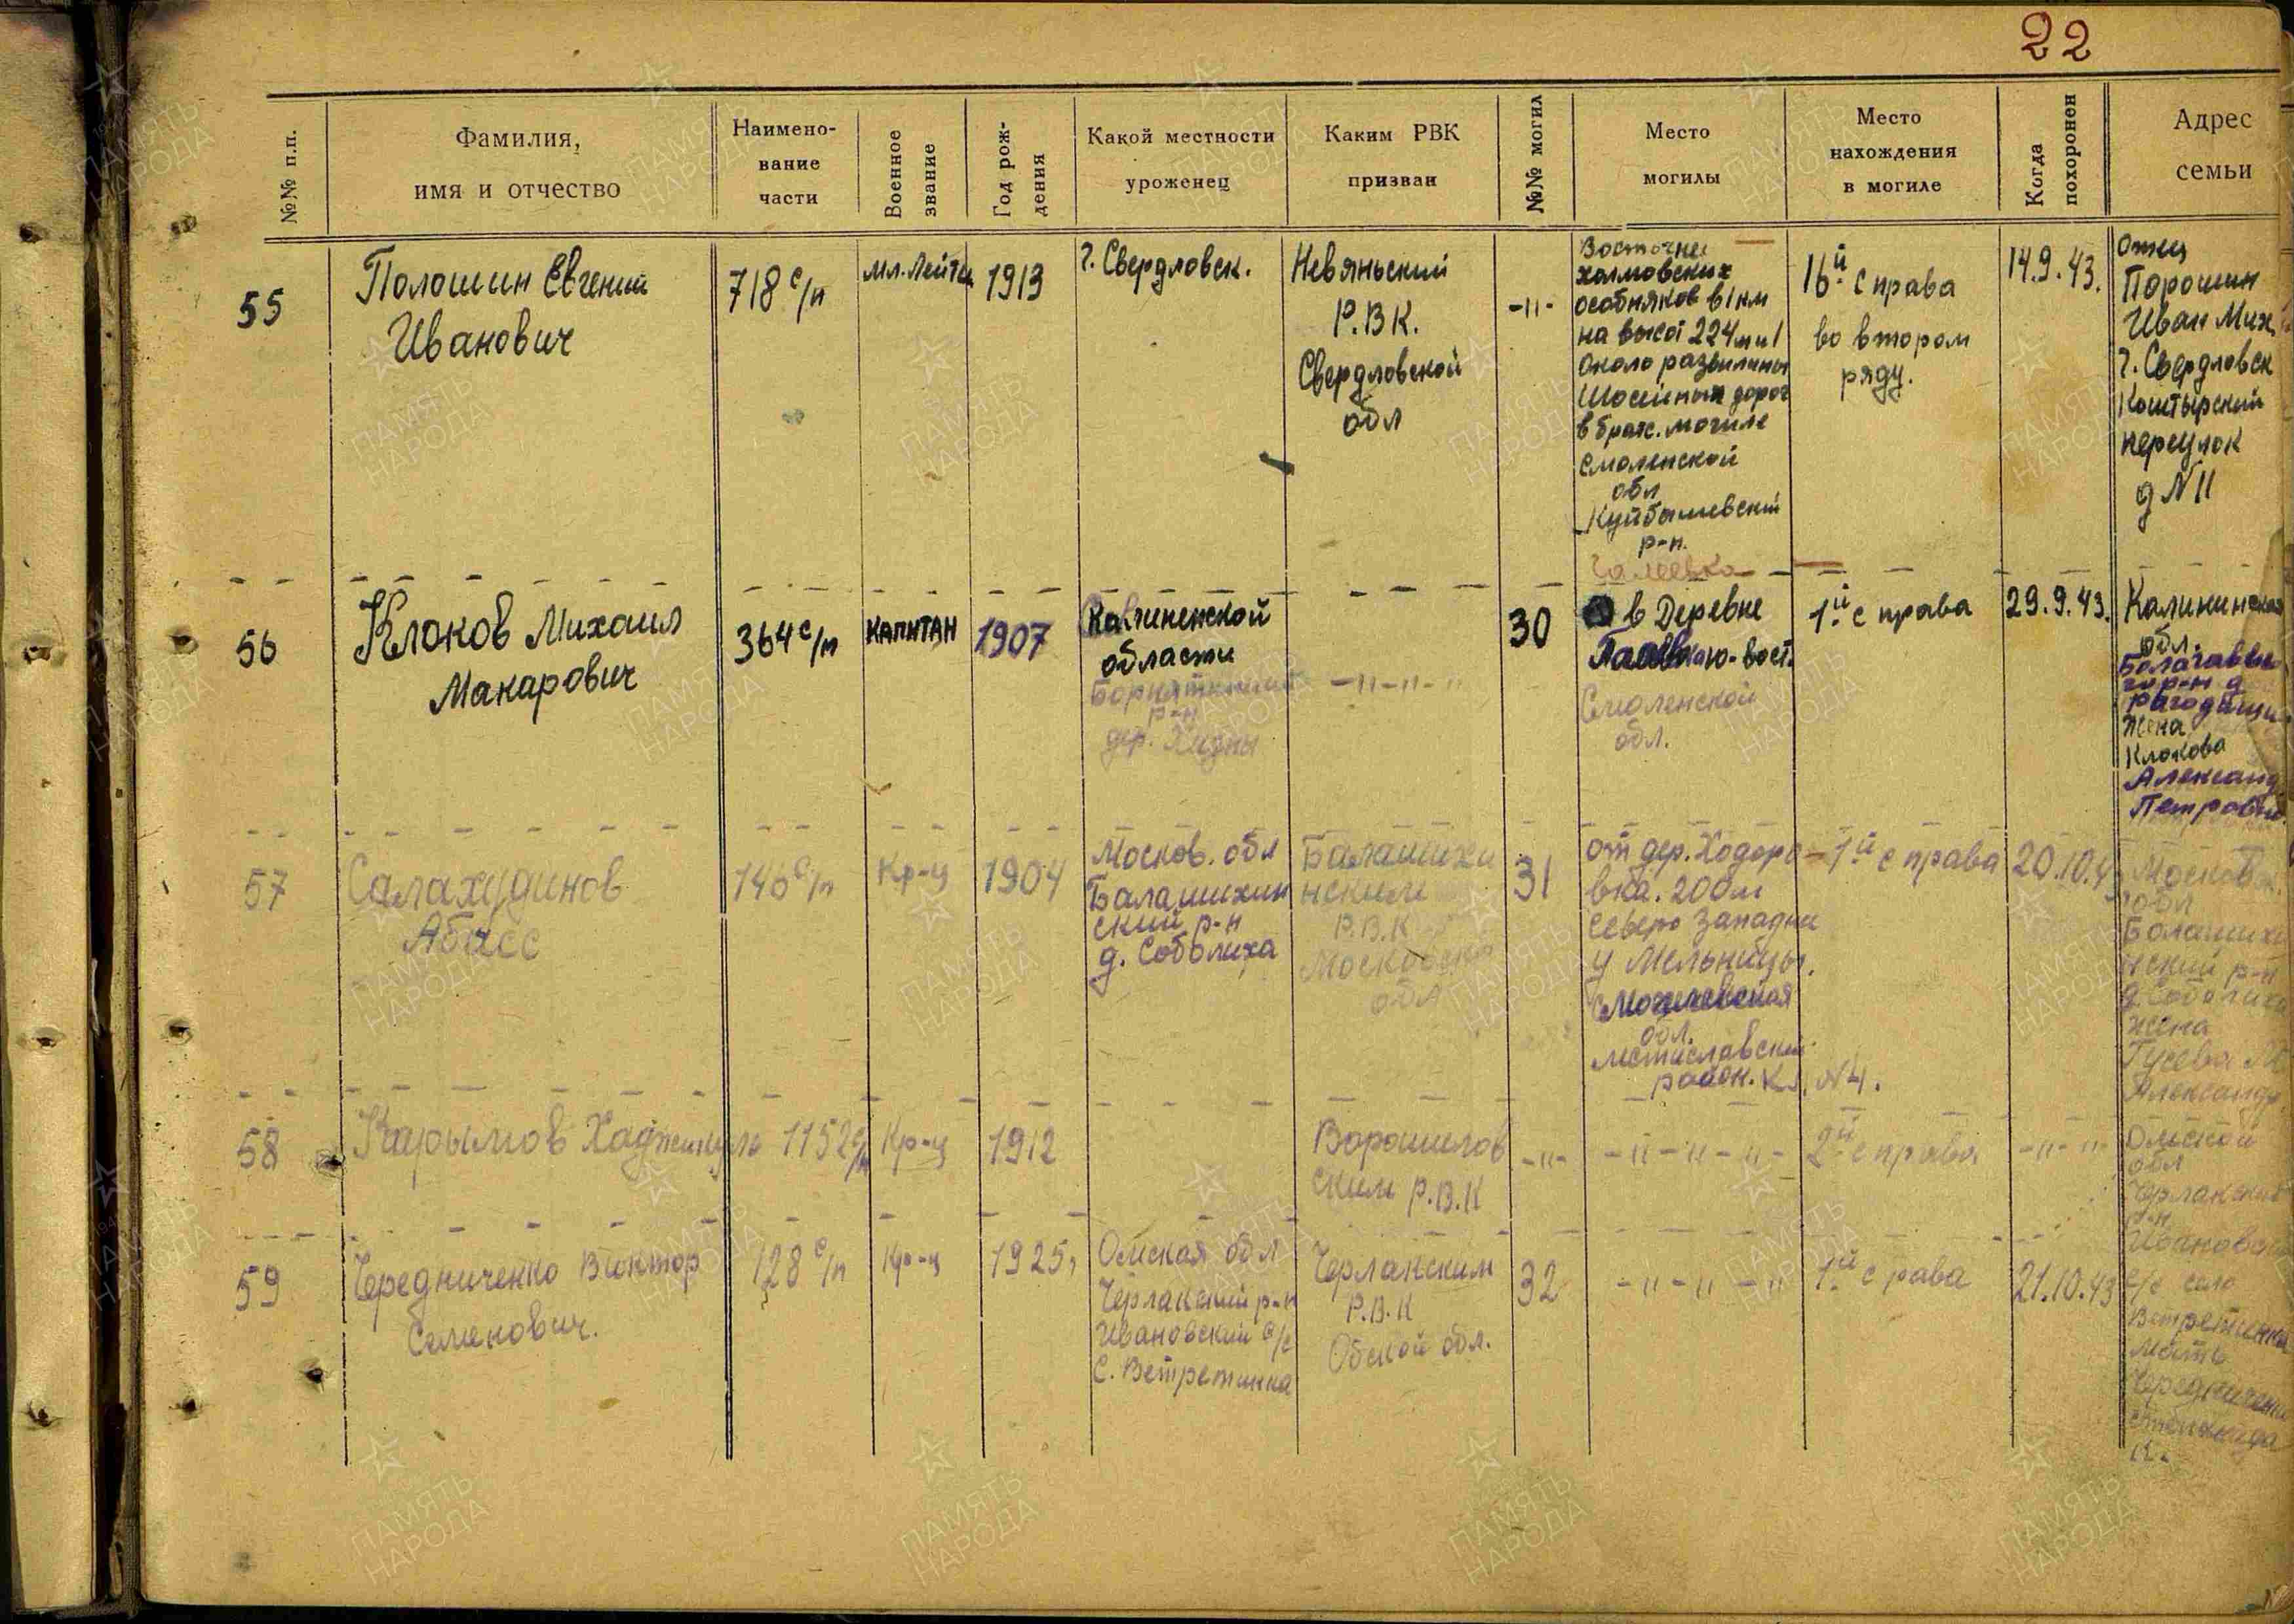 22
№№ п.п.
Фамилия,
имя и отчество
Наимено-
вание
части
Военное
звание
Год рож-
дения
Какой местности
уроженец
Каким РВК
призван
№№ могил
Место
могилы
Место
нахождения
в могиле
Когда
похоронен
Адрес
семьи
55
Полошин Евгений
Иванович
718 с/п
мл. Лейтен
1913
г. Свердловск.
Невяньский
Р.В.К.
Свердловской
обл
-"-
Восточнее
холмовских
особняков в 1 км
на высот 224
около развилины
Шосейных дорог
в братс. могиле
Смоленской
обл
Куйбышевский
р-н.
16й с права
во втором
ряду.
14.9.43.
Отец
Порошин
Иван Мих.
г. Свердловск
Коштырский
переулок
д N 11
56
Клоков Михаил
Макарович
364 с/п
КАПИТАН
1907
Калиненской
области
р-н
дер.
- - -
-"-"-"
30
Гамевка
в Деревне
ю-вост.
Смоленской
обл.
1й с права
29.9.43.
Калининская
обл.
р-н д
Жена
Клокова
Александ
Петровна
57
Салахудинов
Абасс
146 с/п
Кр-ц
1904
Москов. обл
Балашихин
ский р-н
д. Соболиха
Балашихи
нским
Р.В.К
Московской
обл
31
от дер. Ходоро
вка. 200 м
северо западнее
у Мельницы.
Могилевская
обл.
Мстиславский
район. Кл. N4.
1й с права
20.10.43
Московск.
обл
Балашихи
нский р-н
д. Соболиха
жена
Гусева М
Александр
58
Карымов Хаджикуль
1152 с/п
Кр-ц
1912
Ворошилов
ским Р.В.К
-"-
-"-"-"-
2й с права
-"-"-
Омской
обл
Черлакский
р-н
Ивановский
с/с село
Ветретинка
Мать
Чередниченко
К.
59
Чередниченко Виктор
Семенович.
128 с/п
Кр-ц
1925,
Омская обл
Черлакский р-н
Ивановский с/с
С. Ветретинка
Черлакским
Р.В.К
Обской обл.
32
-"-"-"
1й с права
21.10.43
ПАМЯТЬ
НАРОДА